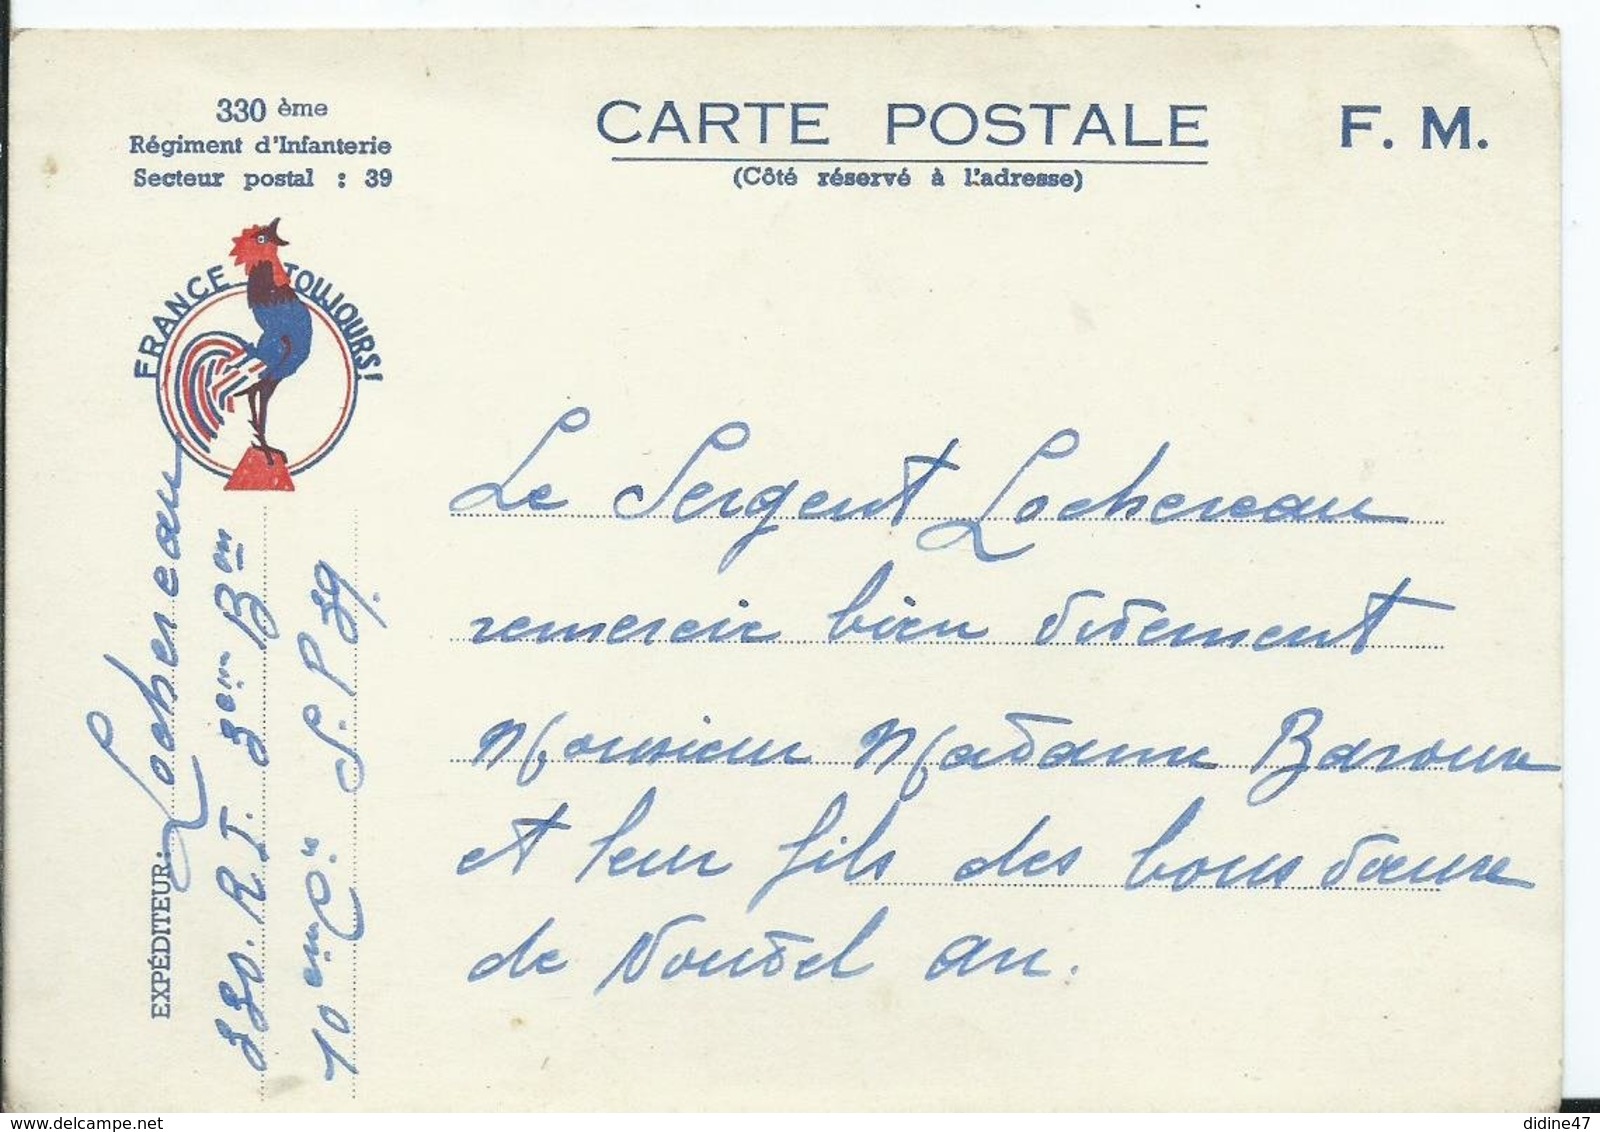 330 ème
Régiment d'Infanterie
Secteur postal : 39
CARTE POSTALE
F. M.
(Côté réservé à l'adresse)
FRANCE TOUJOURS!
EXPÉDITEUR: Lochereau
330. R.I. 3eme Bon
10eme Cie S.P 39.
Le Sergent Lochereau
remercie bien vivement
Monsieur Madame Baroux
et leur fils des bons vœux
de Nouvel an.
didine47